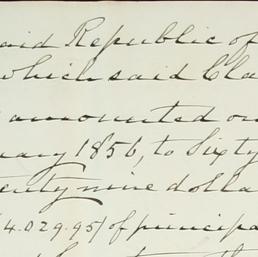 aid Republic of
which said Cla
amounted on
uary 1856, to Sixty
enty nine dolla
(4.029.95) of principa